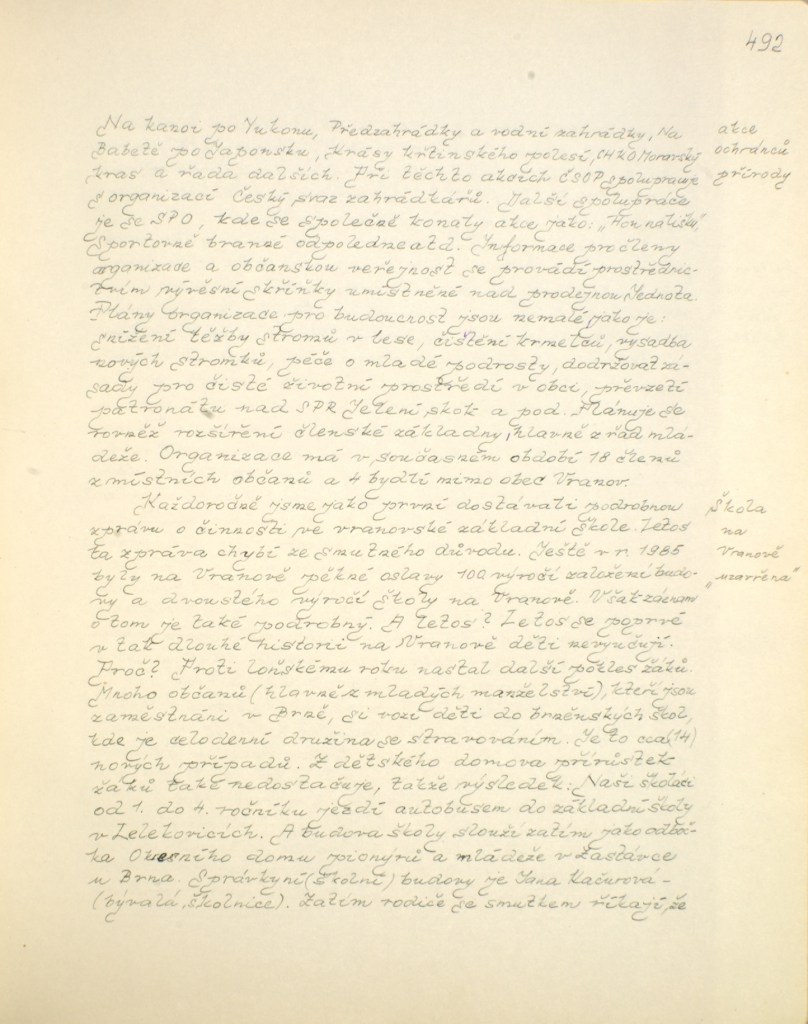 492
Na kanoi po Yukonu, Předzahrádky a vodní zahrádky, Na
Babetě po Japonsku, Krásy křtinského polesí, CHKO Moravský
kras a řada dalších. Při těchto akcích ČSOP spolupracuje
s organizací Český svaz zahrádkářů. Další spolupráce
je se SPO, kde se společně konaly akce jako:
Sportovně branné odpoledne atd. Informace pro členy
organizace a občanskou veřejnost se provádí prostřednic-
tvím vývěsní skříňky umístněné nad prodejnou Jednota.
Plány organizace pro budoucnost jsou nemalé, jako je:
snížení těžby stromů v lese, čištění krmelců, výsadba
nových stromků, péče o mladé podrosty, dodržovat zá-
sady pro čisté životní prostředí v obci, převzetí
patronátu nad SPR Jelení skok a pod. Plánuje se
rovněž rozšíření členské základny, hlavně z řad mlá-
deže. Organizace má v současném období 18 členů
z místních občanů a 4 bydlí mimo obec Vranov.
akce
ochránců
přírody
Každoročně jsme jako první dostávali podrobnou
zprávu o činnosti ve vranovské základní škole. Letos
ta zpráva chybí ze smutného důvodu. Ještě v r. 1985
byly na Vranově pěkné oslavy 100 výročí založení budo-
vy a dvoustého výročí školy na Vranově. Však záznam
o tom je také podrobný. A letos? Letos se poprvé
v tak dlouhé historii na Vranově děti nevyučují.
Proč? Proti loňskému roku nastal další pokles žáků.
Mnoho občanů (hlavně z mladých manželství), kteří jsou
zaměstnáni v Brně, si vozí děti do brněnských škol,
kde je celodenní družina se stravováním. Je to cca (14)
nových případů. Z dětského domova přírůstek
žáků také nedostačuje, takže výsledek: Naši školáci
od 1. do 4. ročníku jezdí autobusem do základní školy
v Lelekovicích. A budova školy slouží zatím jako odboč-
ka Okresního domu pionýrů a mládeže v Zastávce
u Brna. Správkyní (školní) budovy je Jana Kačurová -
(bývalá školnice). Zatím rodiče se smutkem říkají, že
Škola
na
Vranově
"uzavřena"